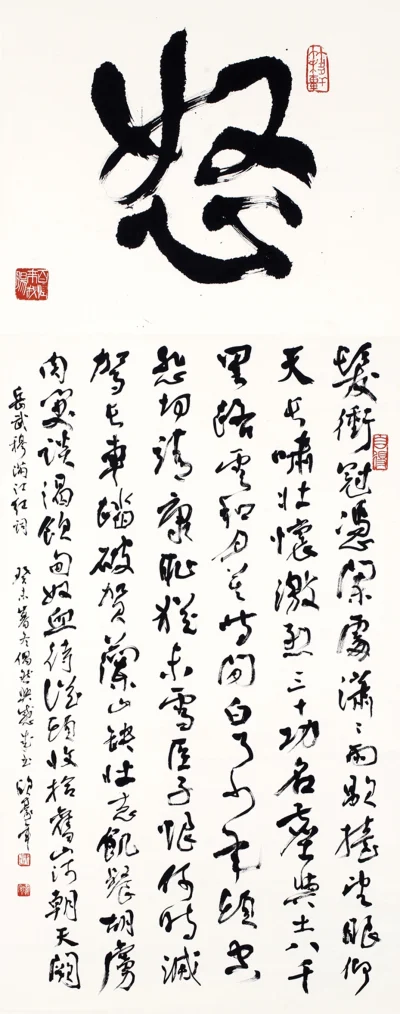 怒
髮衝冠憑闌處瀟〻雨歇擡望眼仰
天長嘯壯懷激烈三十功名塵與土八千
里路雲和月莫等閒白了少年頭空
悲切靖康恥猶未雪臣子恨何時滅
駕長車踏破賀蘭山缺壯志飢餐胡虜
肉笑談渴飲匈奴血待從頭收拾舊山河朝天闕
岳武穆滿江紅詞 癸未暑